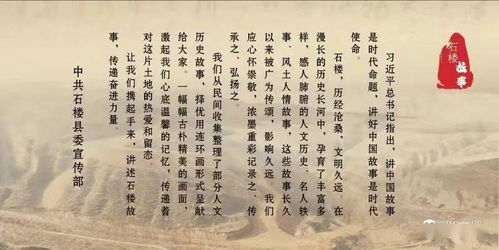 石楼
故事
习近平总书记指出，讲中国故事
是时代命题，讲好中国故事是时代
使命。
石楼，历经沧桑，文明久远，在
漫长的历史长河中，孕育了丰富多
样，感人肺腑的人文历史、名人轶
事、风土人情故事，这些故事长久
以来被广为传颂，影响久远。我们
应心怀崇敬，浓墨重彩记录之、传
承之、弘扬之。
我们从民间收集整理了部分人文
历史故事，择优用连环画形式呈献
给大家。一幅幅古朴精美的画面，
激起我们心底温馨的记忆，传递着
对这片土地的热爱和留恋。
让我们携起手来，讲述石楼故
事，传递奋进力量。
中共石楼县委宣传部